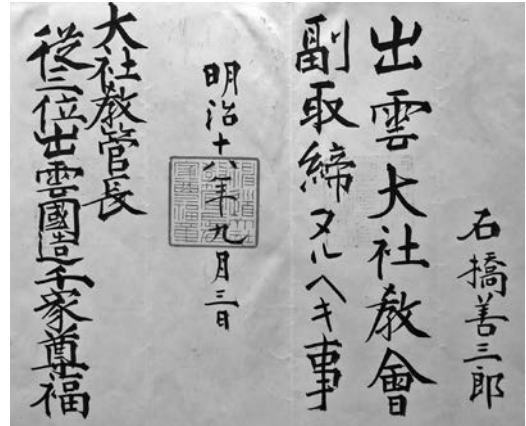 石橋善三郎
出雲大社教會
副取締タルヘキ事
明治十八年九月三日
大社教管長
従三位出雲國造千家尊福